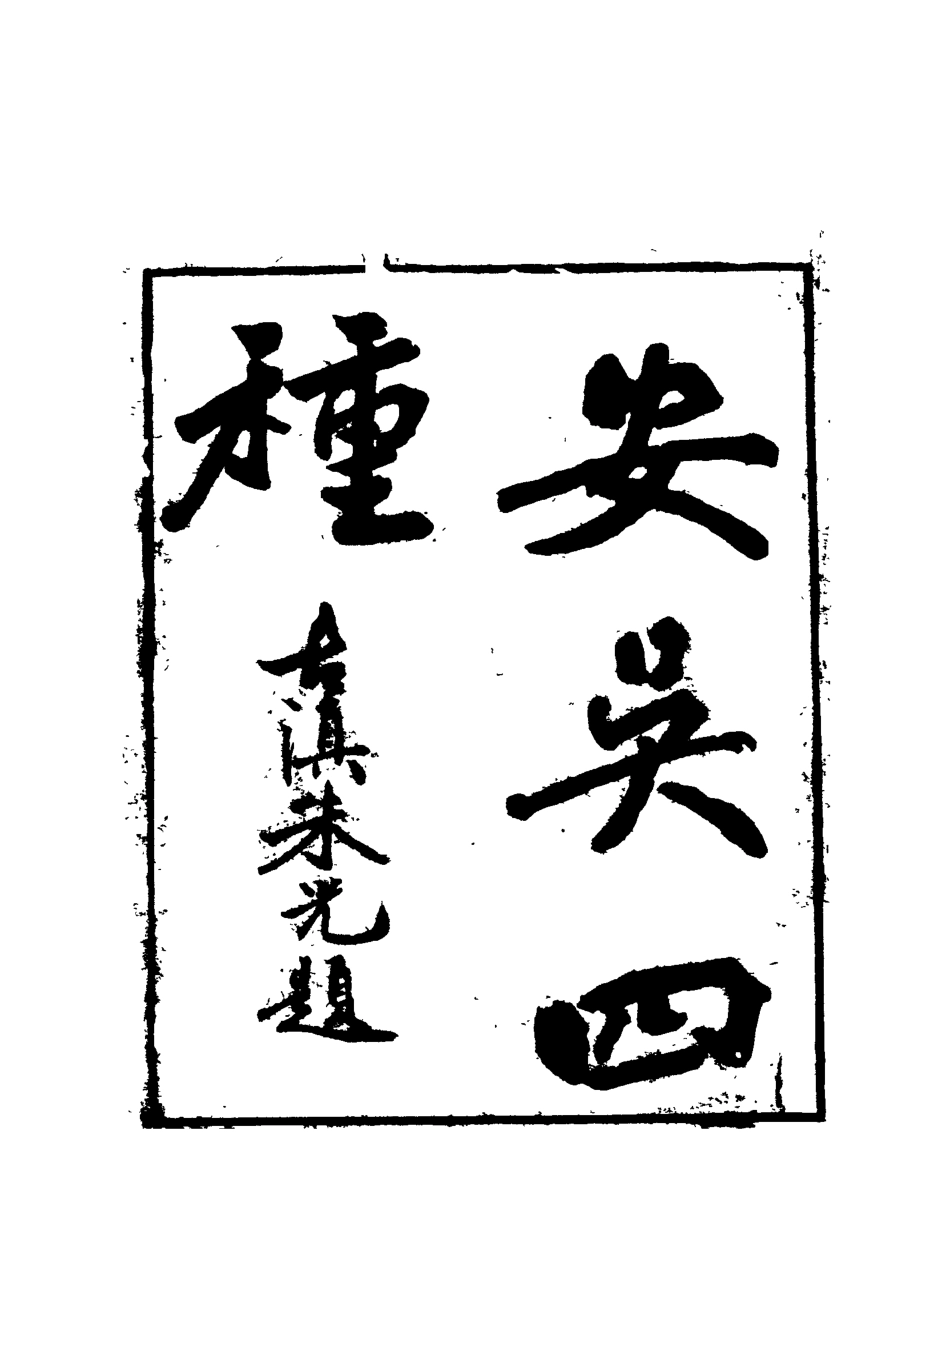 安吳四
種
古滇朱光題